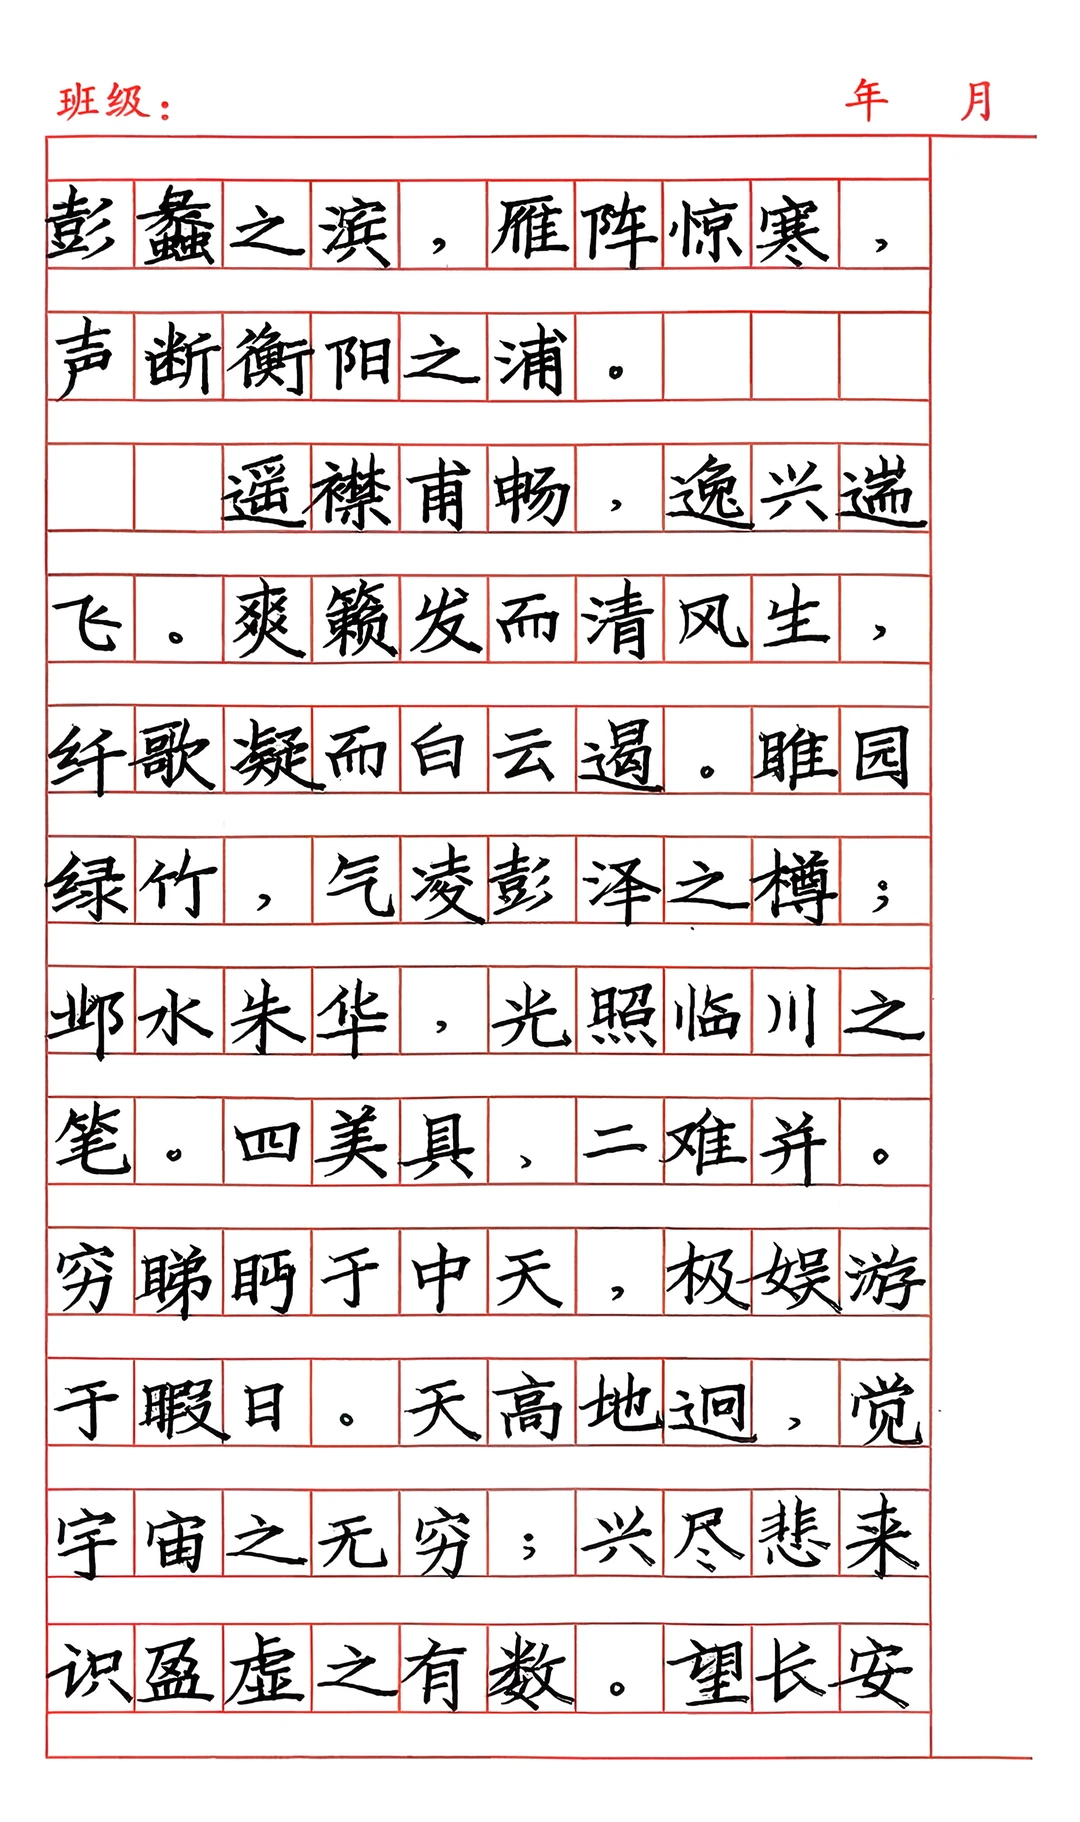 班级： 年 月
彭蠡之滨，雁阵惊寒，
声断衡阳之浦。
遥襟甫畅，逸兴遄
飞。爽籁发而清风生，
纤歌凝而白云遏。睢园
绿竹，气凌彭泽之樽；
邺水朱华，光照临川之
笔。四美具，二难并。
穷睇眄于中天，极娱游
于暇日。天高地迥，觉
宇宙之无穷；兴尽悲来
识盈虚之有数。望长安